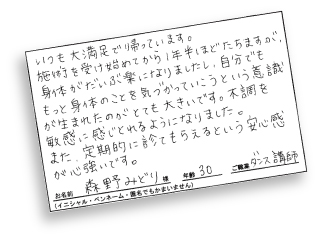 いつも大満足で帰っています。
施術を受け始めてから1年半ほどたちますが、
身体がだいぶ楽になりましたし、自分でも
もっと身体のことを気づかっていこうという意識
が生まれたのがとても大きいです。不調を
敏感に感じとれるようになりました。
また、定期的に診てもらえるという安心感
が心強いです。
お名前 森野みどり 様 年齢 30 ご職業 ダンス講師
(イニシャル・ペンネーム・匿名でもかまいません)